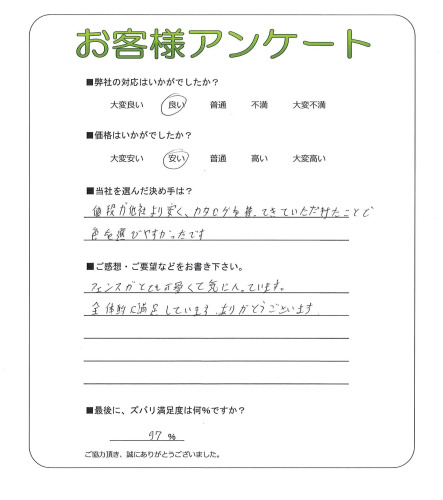 お客様アンケート
■弊社の対応はいかがでしたか？
大変良い 良い 普通 不満 大変不満
■価格はいかがでしたか？
大変安い 安い 普通 高い 大変高い
■当社を選んだ決め手は？
値段が他社より安く、カタログを持ってきていただけたことで
色を選びやすかったです
■ご感想・ご要望などをお書き下さい。
フェンスがとても良くて気に入っています。
全体的に満足しています。ありがとうございます。
■最後に、ズバリ満足度は何％ですか？
97 ％
ご協力頂き、誠にありがとうございました。